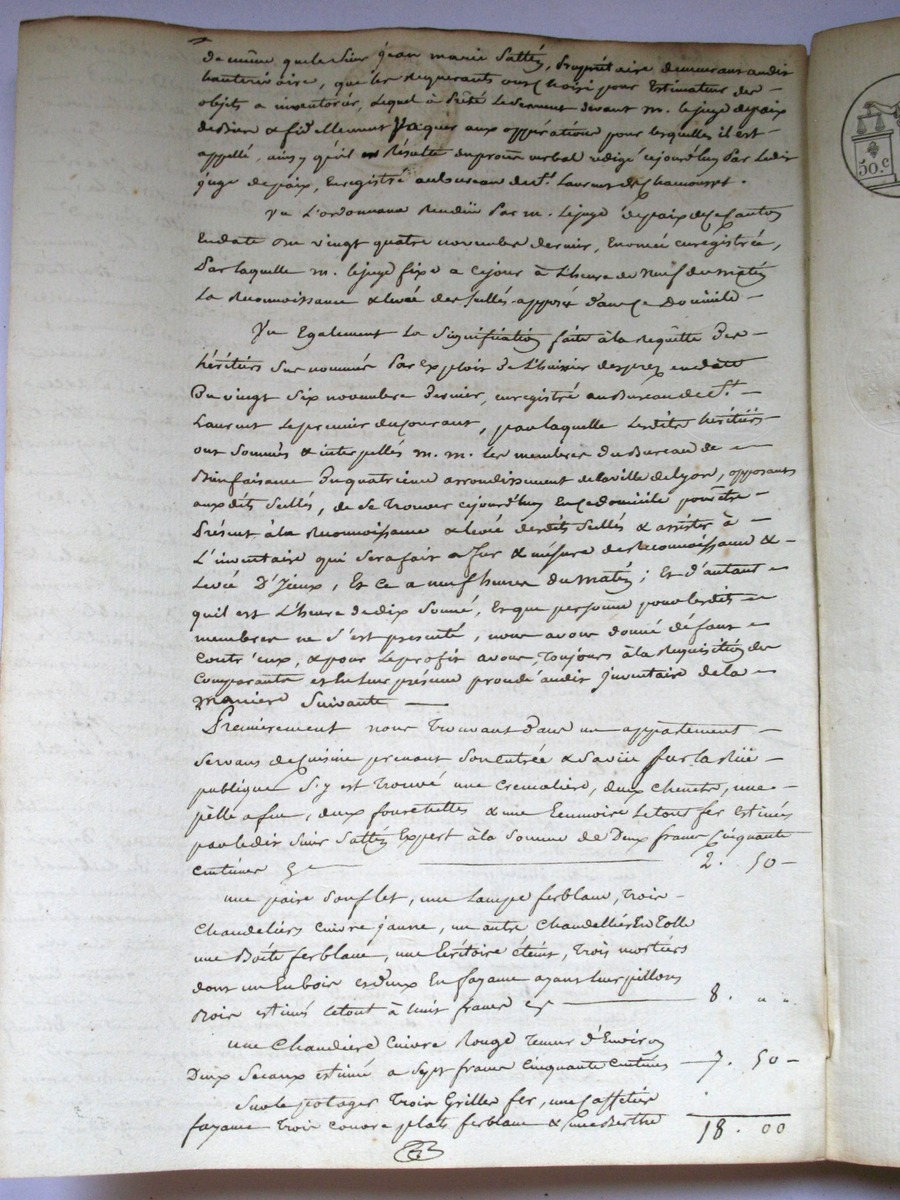 de même que le Sieur jean marie Sattin, Propriétaire demeurant audit
hauterivoire, que les Requerants ont choisi pour Estimateur des
objets a inventorier, Lequel à Prêté Le Serment devant m. le juge de paix
de Bien & fidellement Vaquer aux opperations pour lesquelles il est
appellé, ainsy qu'il en Résulte du procès verbal rédigé cejourd'huy Par Ledit
juge de paix, Enregistré au bureau de St. Laurent de Chamousset.
Vu L'ordonnance Rendüe Par m. Lejuge de paix de ce Canton
En date du vingt quatre novembre dernier, Enregistrée,
Par laquelle m. le juge fixe a cejour à L'heure de Neuf du matin
La Reconnoissance & levée des scellés apposés dans ce Domicile
Vu Egalement La Signification faite à la Requête des
héritiers Sus nommés Par Exploit de L'huissier en date
Du vingt Six novembre Dernier, enregistré au Bureau de St.
Laurent Le premier du Courant, par laquelle Lesdits héritiers
ont Sommés & interpellés m. m. les membres du Bureau de
Bienfaisance Du quatrieme arrondissement de la ville de Lyon, opposants
auxdits Scellés, de se Trouver cejourd'huy En ce domicile pour être
Présent à la Reconnoissance & levée desdits Scellés & assister à
L'inventaire qui Sera fait a fur & mesure de Reconnoissance &
Levée D'Iceux, Et Ce a neuf heures du matin; Et d'autant
quil est L'heure de dix Sonné, Et que personne pour lesdits
membres ne S'est presenté, nous avons donné défaut
Contr'eux, & pour Le profit avons, Toujours à la Requisition des
Comparants et En leur présence procédé audit Inventaire de la
maniere Suivante
Premièrement nous Trouvant dans un appartement
Servant de Cuisine prenant Son entrée & Sa vüe Sur la Rüe
publique S'y est Trouvé une Cremaliere, deux Chenets, une
pèlle a feu, deux fourchettes & une Le tout fer estimés
par ledit Sieur Sattin Expert à la Somme de Deux francs Cinquante
Centimes Cy 2. 50
une paire Souflet, une Lampe ferblanc, Trois
Chandeliers Cuivre jaune, un autre Chandellier En Tolle
une Boëte ferblanc, une Ecritoire étain, Trois mortiers
dont un En bois et deux En fayance ayant leur pillons
Bois estimés Le tout à huit francs cy 8. " "
une Chaudiere Cuivre Rouge Teneur d'Environ
Deux Seaux estimée a Sept francs Cinquante Centimes 7. 50
Sur le potager Trois Grilles fer, une Caffetiere
fayance Trois Couvre plats ferblanc & une Berthe 18. 00
50.c